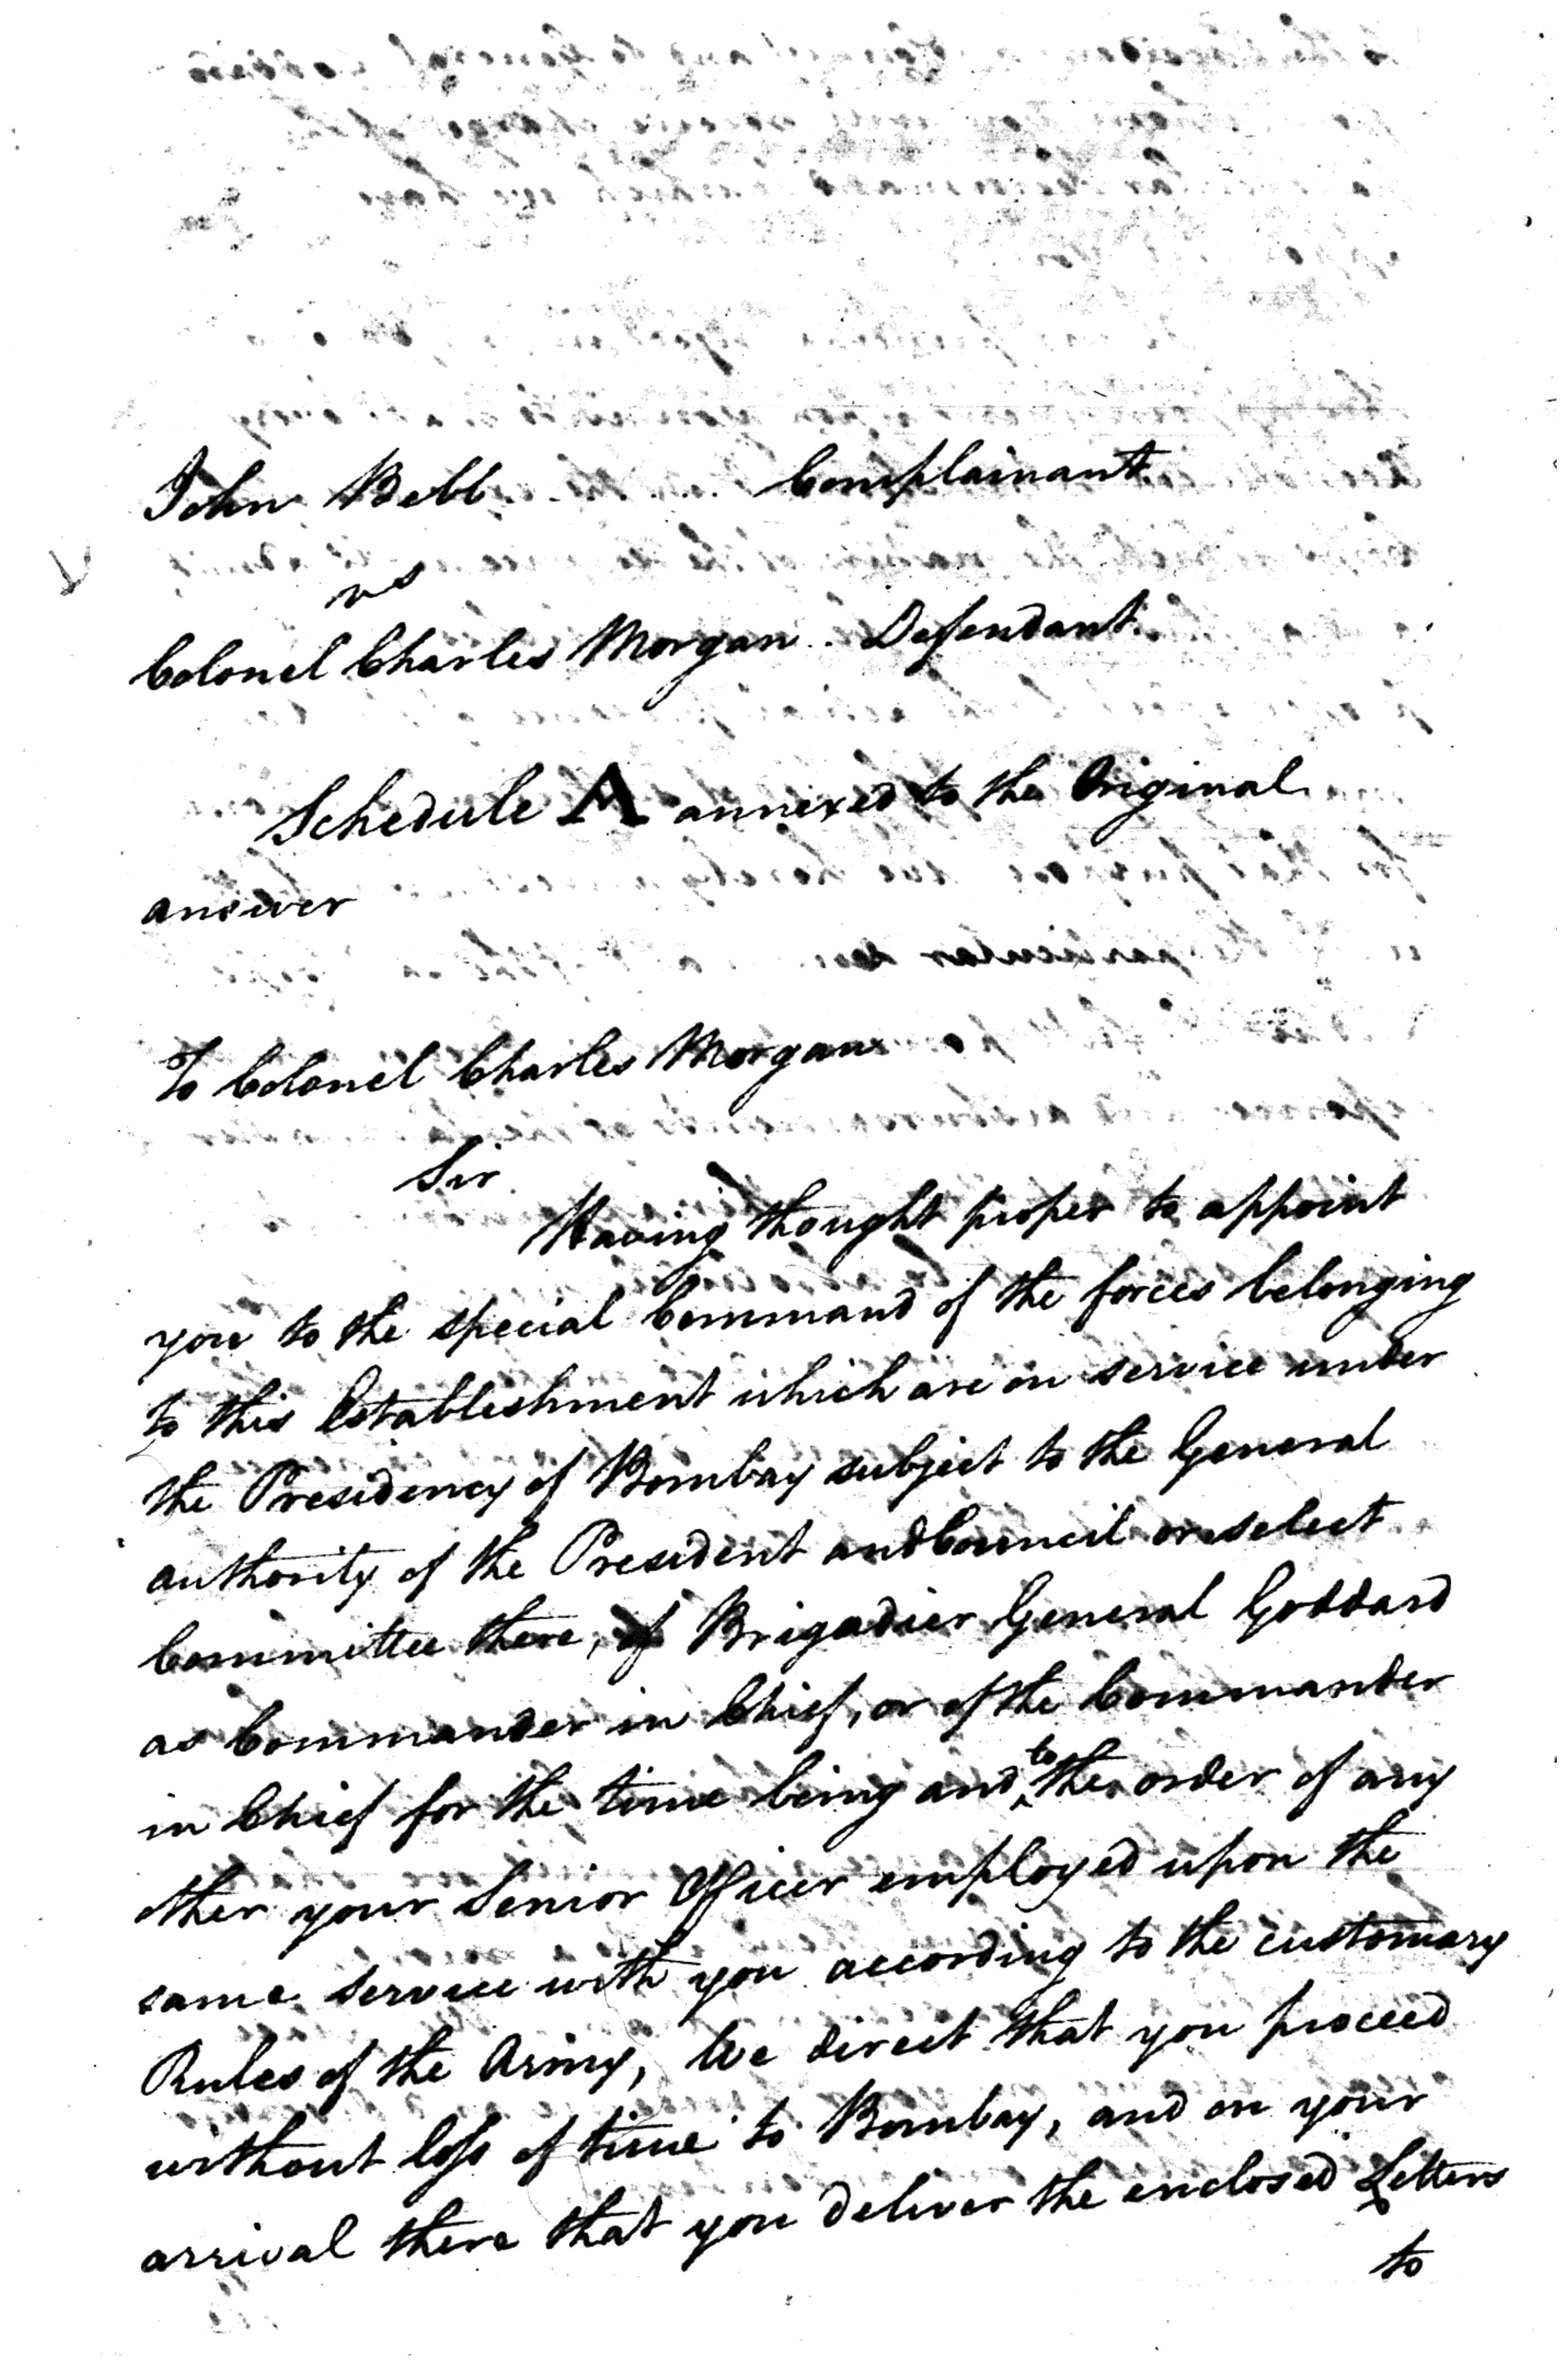 John Bebb Complainant
vs
Colonel Charles Morgan . Defendant
Schedule A annexed to the Original
answer
To Colonel Charles Morgan
Sir
Having thought proper to appoint
you to the special Command of the forces belonging
to this Establishment which are on service under
the Presidency of Bombay subject to the General
authority of the President and Council or select
Committee there, of Brigadier General Goddard
as Commander in Chief, or of the Commander
in Chief for the time being and to the order of any
other your Senior Officer employed upon the
same service with you according to the customary
Rules of the Army, We direct that you proceed
without loss of time to Bombay, and on your
arrival there that you deliver the enclosed Letters
to